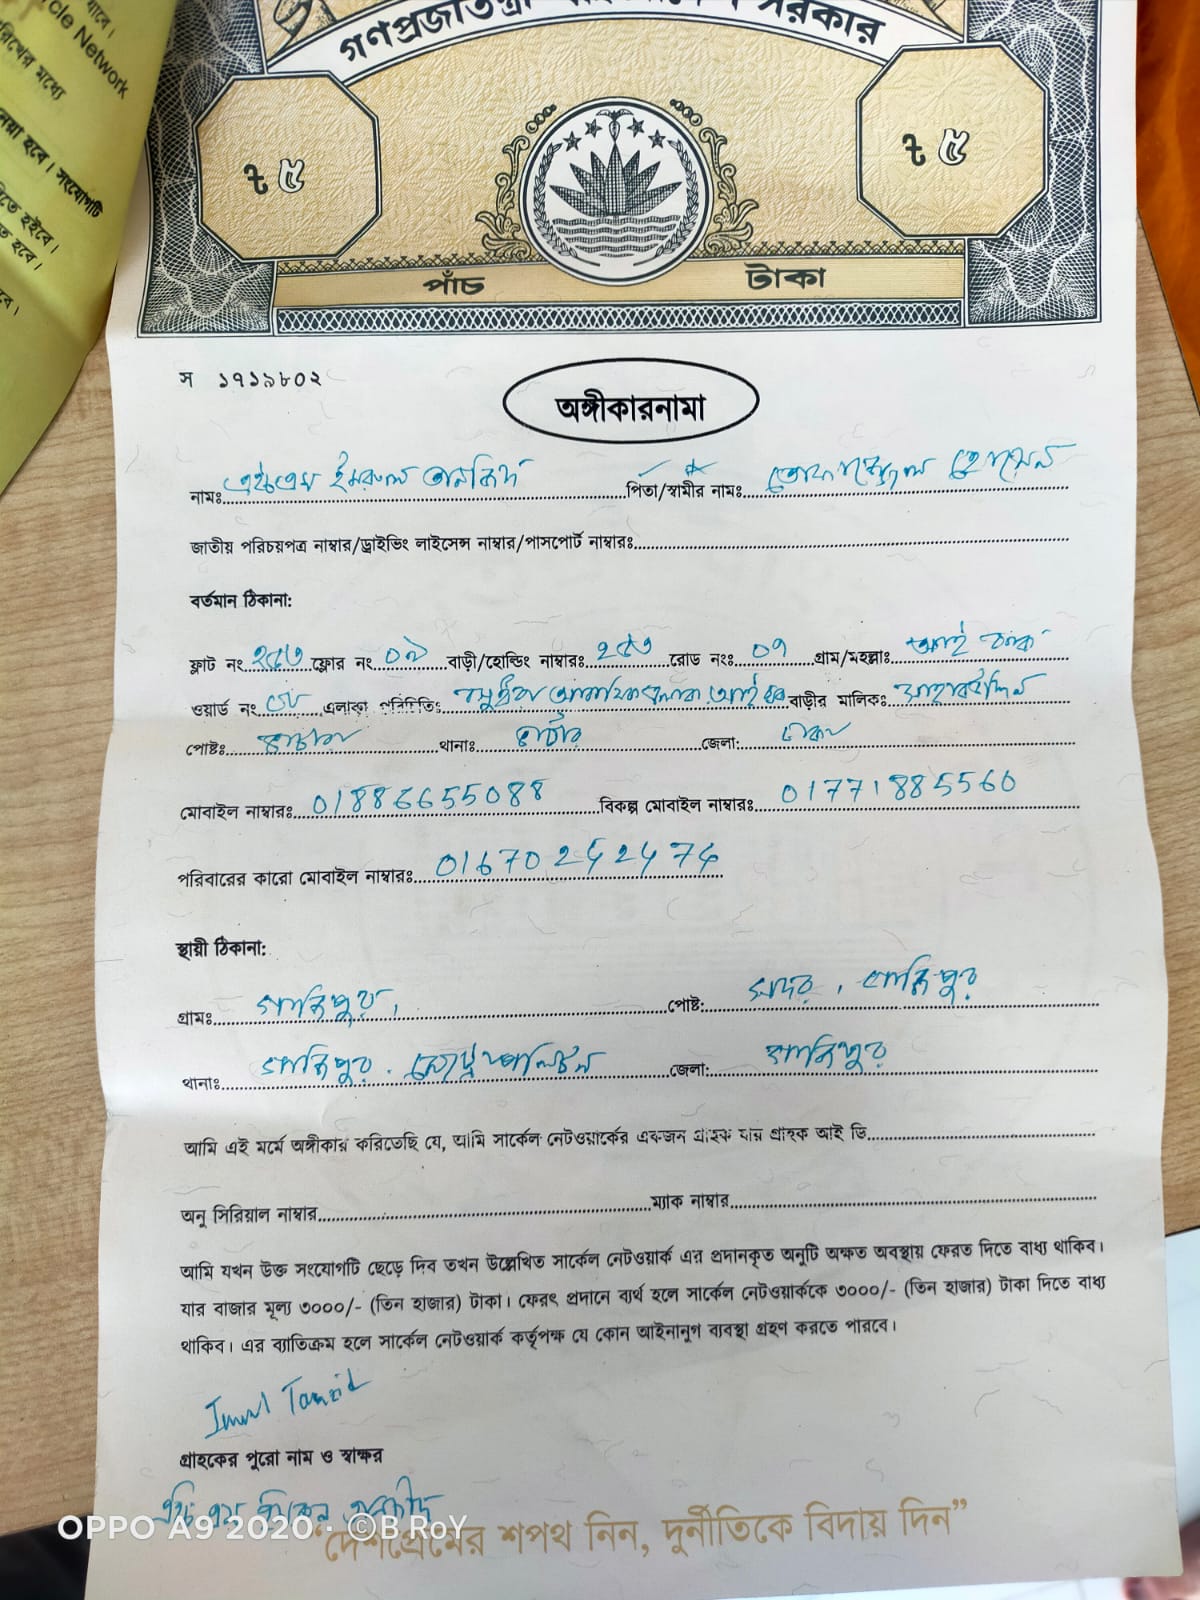 যাবে।
cle Network
রিখের মধ্যে
নেয়া হবে। সংযোগটি
তে হইবে।
ত হবে।
বে।
গণপ্রজাতন্ত্রী সরকার
৳ ৫
৳ ৫
পাঁচ টাকা
স ১৭১৯৮০২
অঙ্গীকারনামা
নামঃ এইচ এম ইমরুল তানজিদ পিতা/স্বামীর নামঃ তোফাজ্জেল হোসেন
জাতীয় পরিচয়পত্র নাম্বার/ড্রাইভিং লাইসেন্স নাম্বার/পাসপোর্ট নাম্বারঃ
বর্তমান ঠিকানা:
ফ্লাট নং ২৫৩ ফ্লোর নং ০৯ বাড়ী/হোল্ডিং নাম্বারঃ ২৫৩ রোড নংঃ ০৭ গ্রাম/মহল্লাঃ আই ব্লক
ওয়ার্ড নং এলাকা পরিচিতিঃ বসুন্ধরা আবাসিক এলাকা আই ব্লক বাড়ীর মালিকঃ
পোষ্টঃ ভাটারা থানাঃ ভাটারা জেলা: ঢাকা
মোবাইল নাম্বারঃ 01886655088 বিকল্প মোবাইল নাম্বারঃ 01771885560
পরিবারের কারো মোবাইল নাম্বারঃ 01670252474
স্থায়ী ঠিকানা:
গ্রামঃ পোষ্ট: সদর,
থানাঃ জেলা:
আমি এই মর্মে অঙ্গীকার করিতেছি যে, আমি সার্কেল নেটওয়ার্কের একজন গ্রাহক যার গ্রাহক আই ডি
অনু সিরিয়াল নাম্বার ম্যাক নাম্বার
আমি যখন উক্ত সংযোগটি ছেড়ে দিব তখন উল্লেখিত সার্কেল নেটওয়ার্ক এর প্রদানকৃত অনুটি অক্ষত অবস্থায় ফেরত দিতে বাধ্য থাকিব।
যার বাজার মূল্য ৩০০০/- (তিন হাজার) টাকা। ফেরৎ প্রদানে ব্যর্থ হলে সার্কেল নেটওয়ার্ককে ৩০০০/- (তিন হাজার) টাকা দিতে বাধ্য
থাকিব। এর ব্যাতিক্রম হলে সার্কেল নেটওয়ার্ক কর্তৃপক্ষ যে কোন আইনানুগ ব্যবস্থা গ্রহণ করতে পারবে।
Imrul Tanzid
গ্রাহকের পুরো নাম ও স্বাক্ষর
এইচ এম ইমরুল তানজীদ
OPPO A9 2020 · ©B.RoY
“দেশপ্রেমের শপথ নিন, দুর্নীতিকে বিদায় দিন”